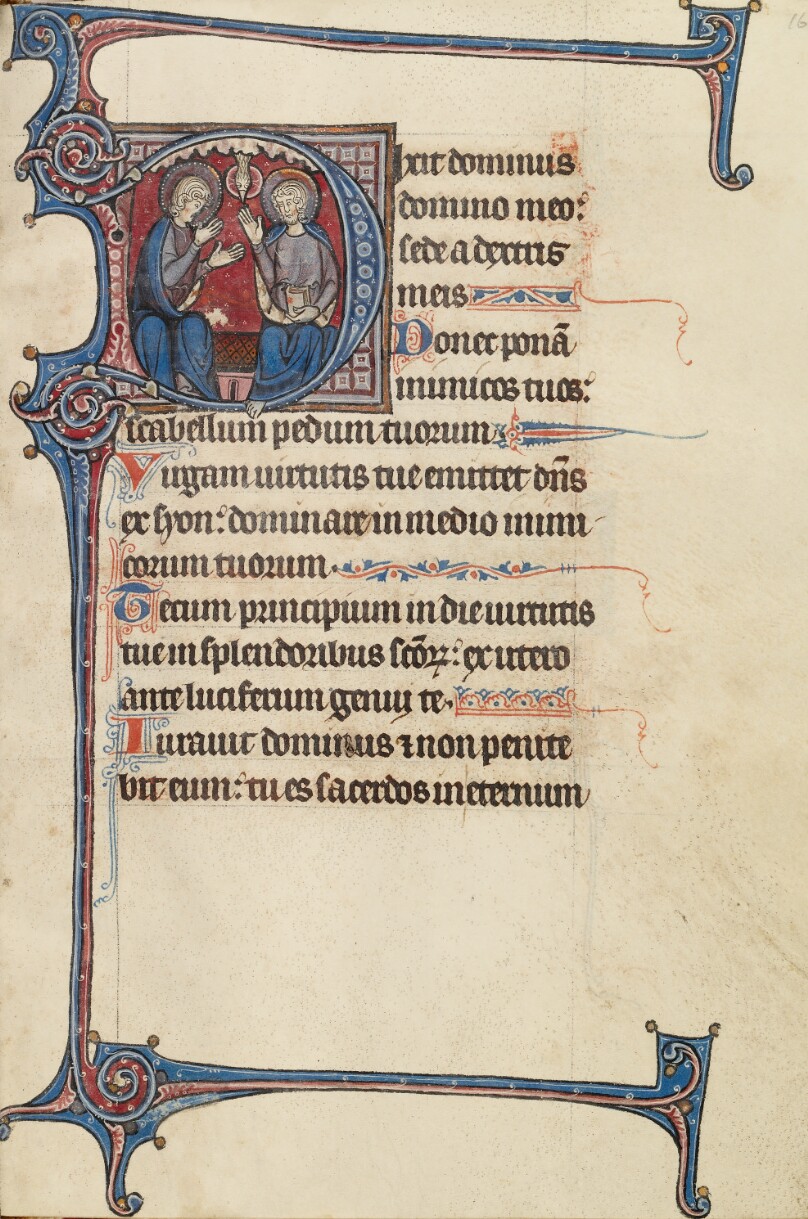 Dixit dominus
domino meo:
sede a dextris
meis
Donec ponã
inimicos tuos:
scabellum pedum tuorum
Virgam uirtutis tue emittet dñs
ex syon: dominare in medio inimi
corum tuorum.
Tecum principium in die uirtutis
tue in splendoribus scõꝝ: ex utero
ante luciferum genui te.
Iurauit dominus ⁊ non penite
bit eum: tu es sacerdos in eternum